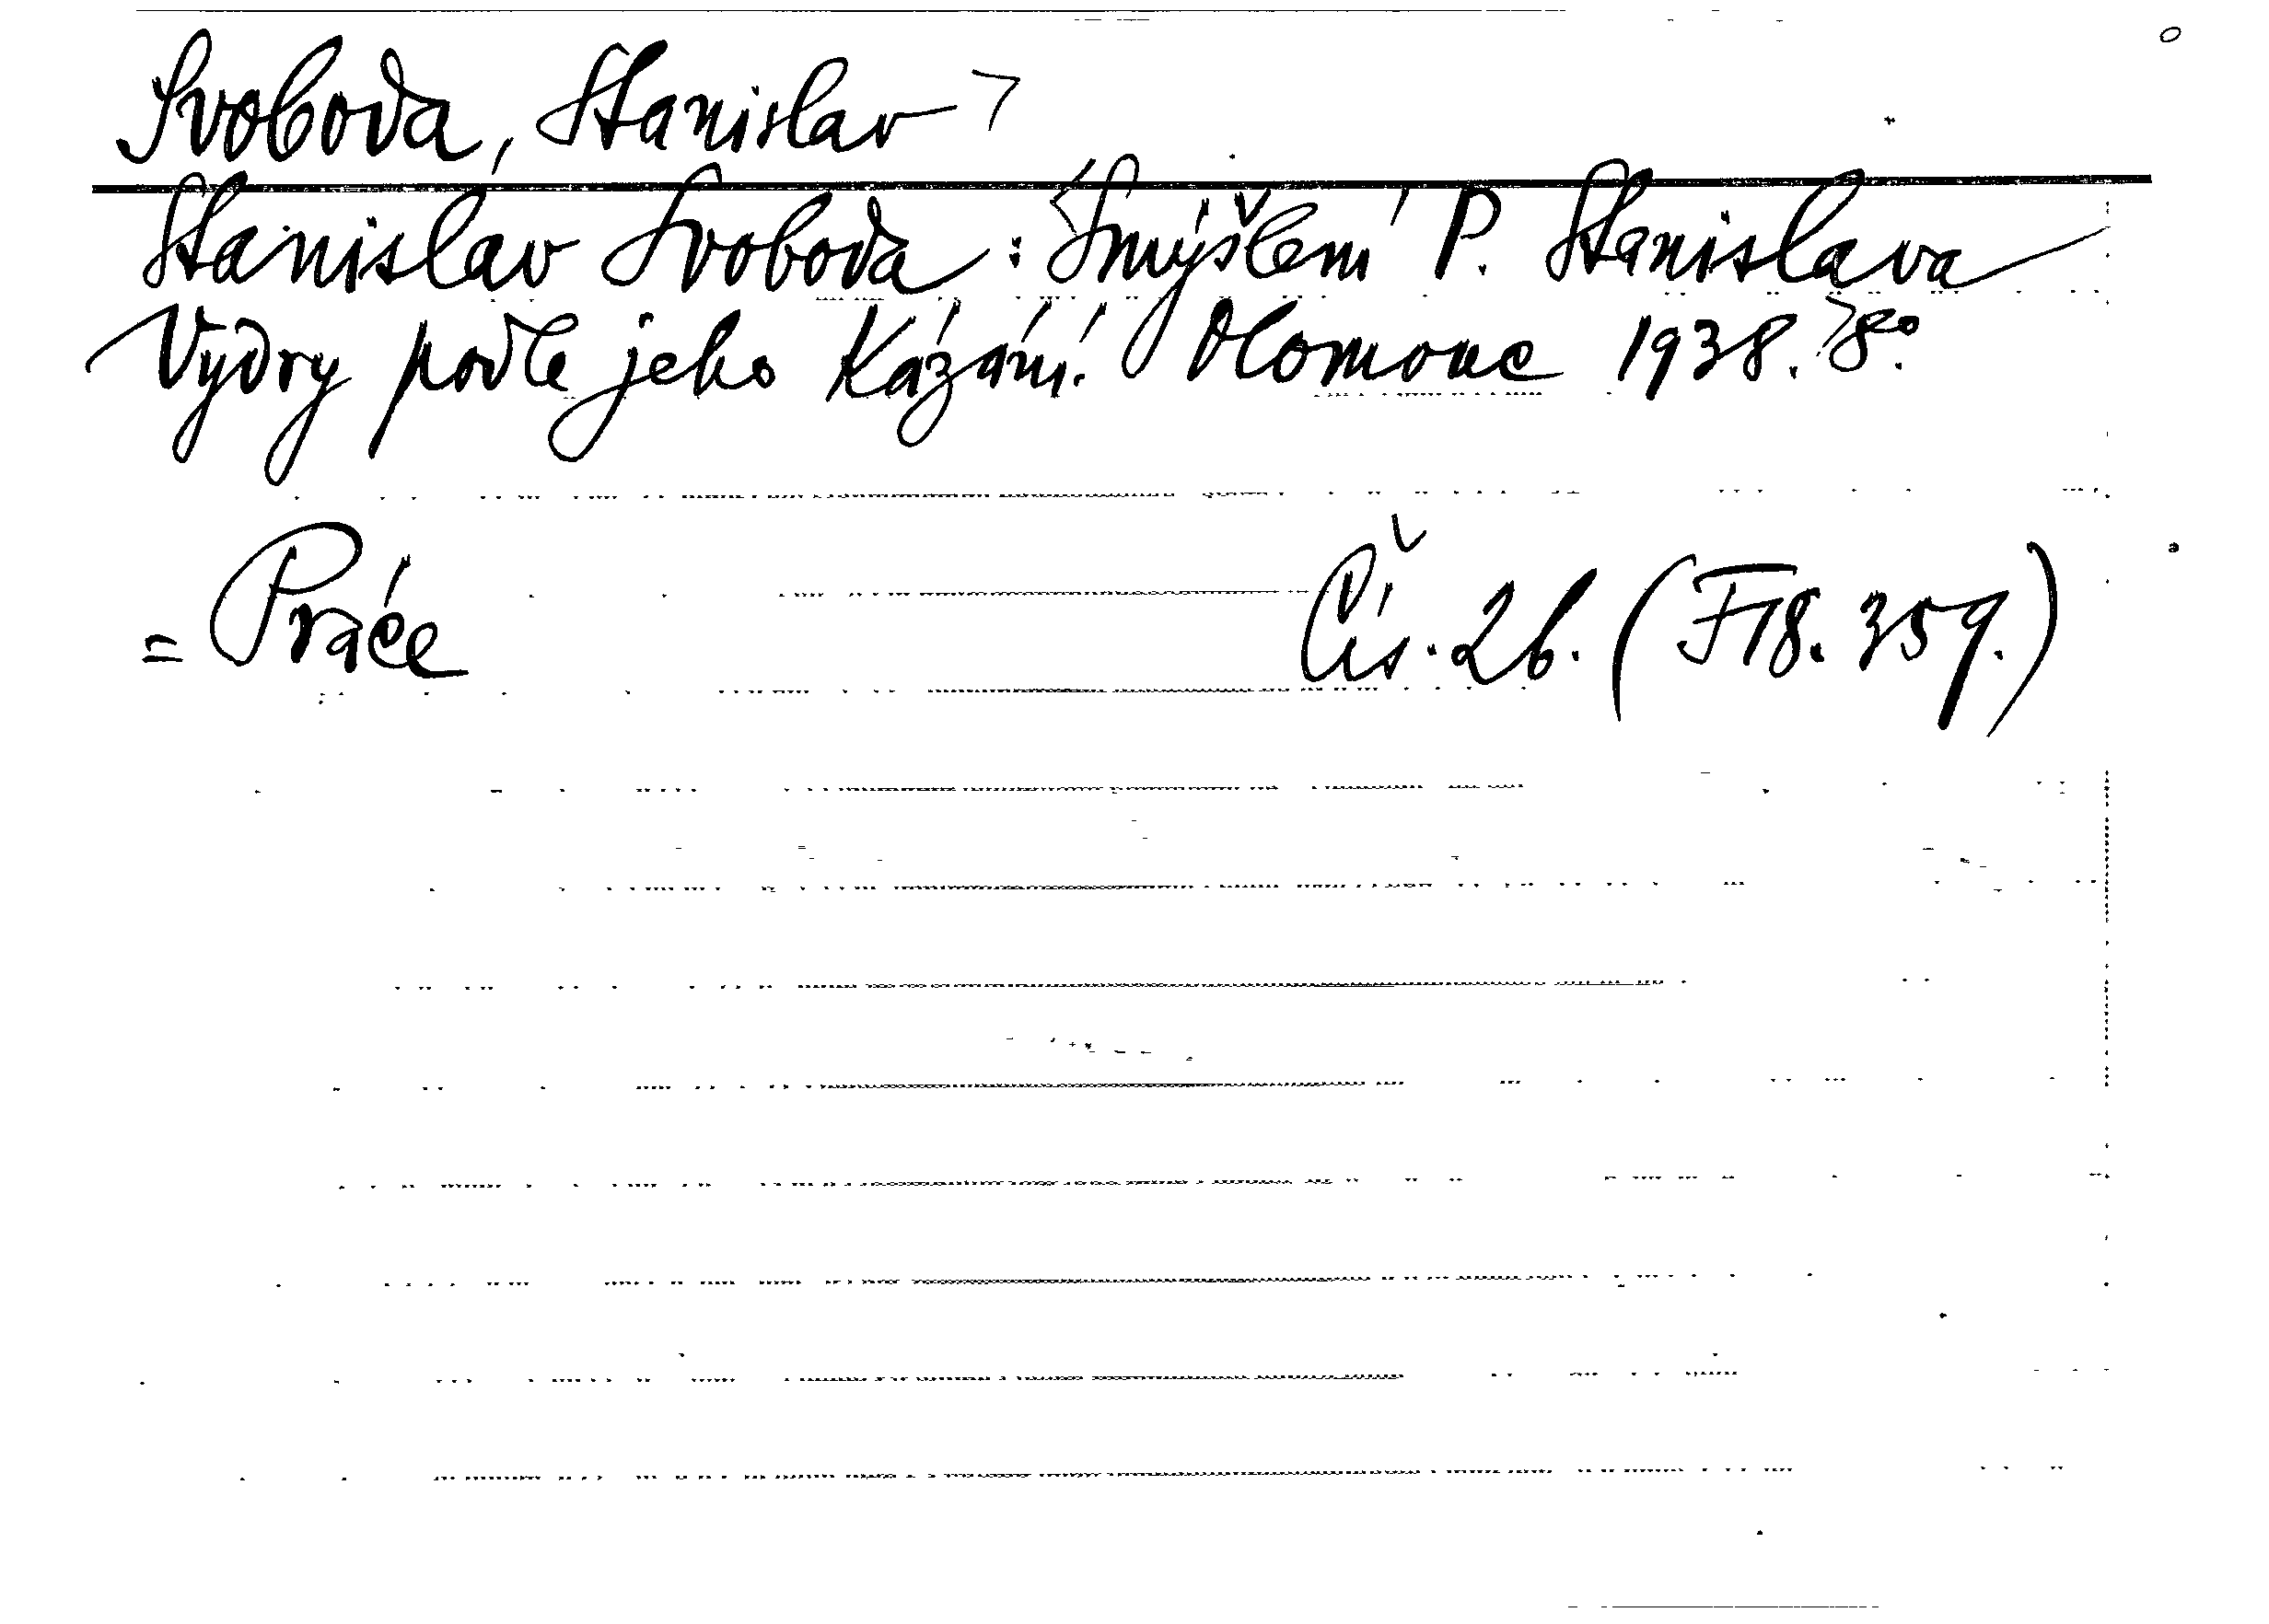 Svoboda, Stanislav
Stanislav Svoboda : Smýšlení P. Stanislava
Vydry podle jeho kázání. Olomouc 1938. 8°.
= Práce Čís. 26. (F18.359.)